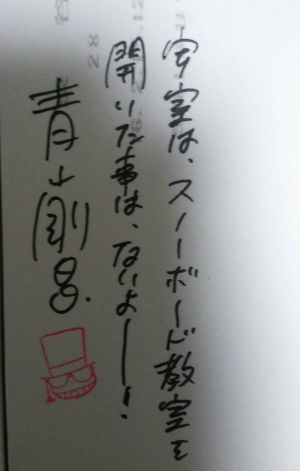 宇宙は、スノーボード教室を
開いた事は、ないよー！
青山剛昌.